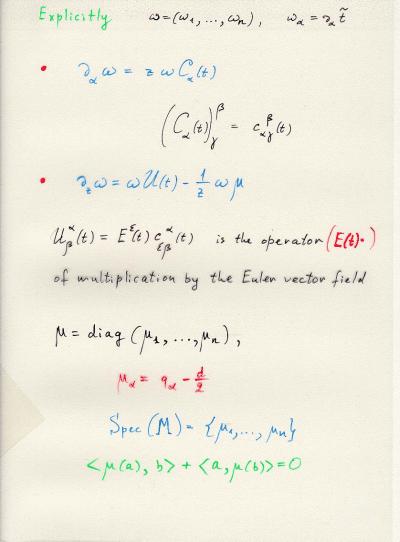 Explicitly ω=(ω₁,...,ωₙ), ω_α = ∂_α t̃
• ∂_α ω = z ω C_α(t)
(C_α(t))^β_γ = c^β_αγ(t)
• ∂_z ω = ω U(t) - 1/z ω μ
U^α_β(t) = E^ε(t) c^α_εβ(t) is the operator (E(t)·)
of multiplication by the Euler vector field
μ = diag (μ₁,...,μₙ),
μ_α = q_α - d/2
Spec (M) = {μ₁,..., μₙ}
<μ(a), b> + <a, μ(b)> = 0